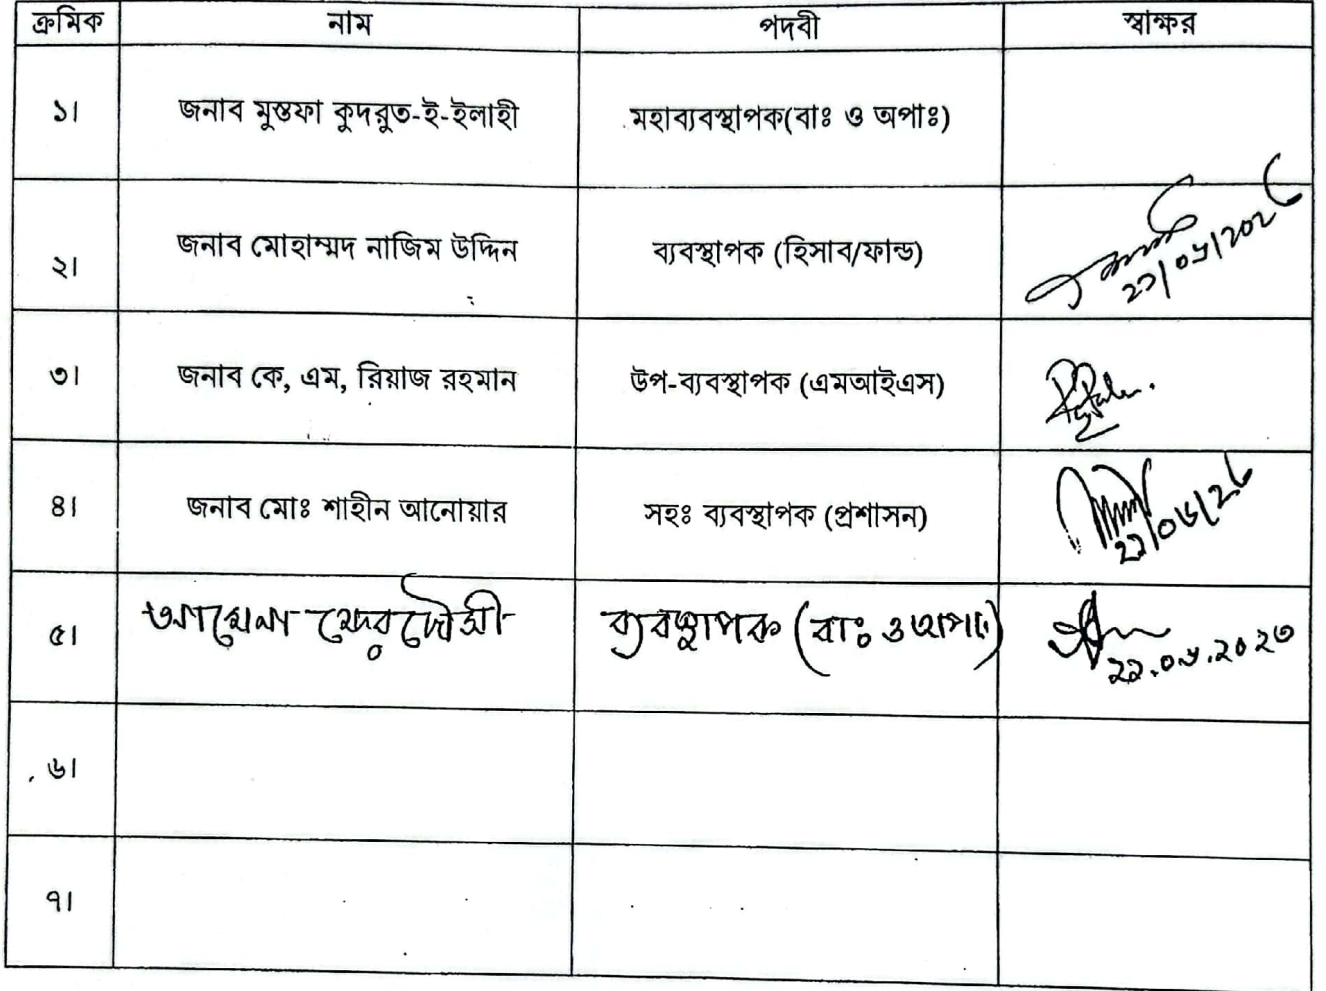 ক্রমিক নাম পদবী স্বাক্ষর
১। জনাব মুস্তফা কুদরুত-ই-ইলাহী মহাব্যবস্থাপক(বাঃ ও অপাঃ)
২। জনাব মোহাম্মদ নাজিম উদ্দিন ব্যবস্থাপক (হিসাব/ফান্ড)
৩। জনাব কে, এম, রিয়াজ রহমান উপ-ব্যবস্থাপক (এমআইএস)
৪। জনাব মোঃ শাহীন আনোয়ার সহঃ ব্যবস্থাপক (প্রশাসন)
৫। ব্যবস্থাপক (বাঃ ও অপাঃ)
৬।
৭।